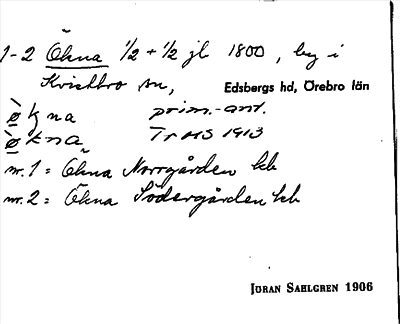 1-2 Ökna 1/2 + 1/2 jb 1800, by i
Kvistbro sn, Edsbergs hd, Örebro län
ø̀kna prim.-ant.
ø̀kna TrHS 1913
nr. 1 = Ökna Norrgården kb
nr. 2 = Ökna Södergården kb
JÖRAN SAHLGREN 1906